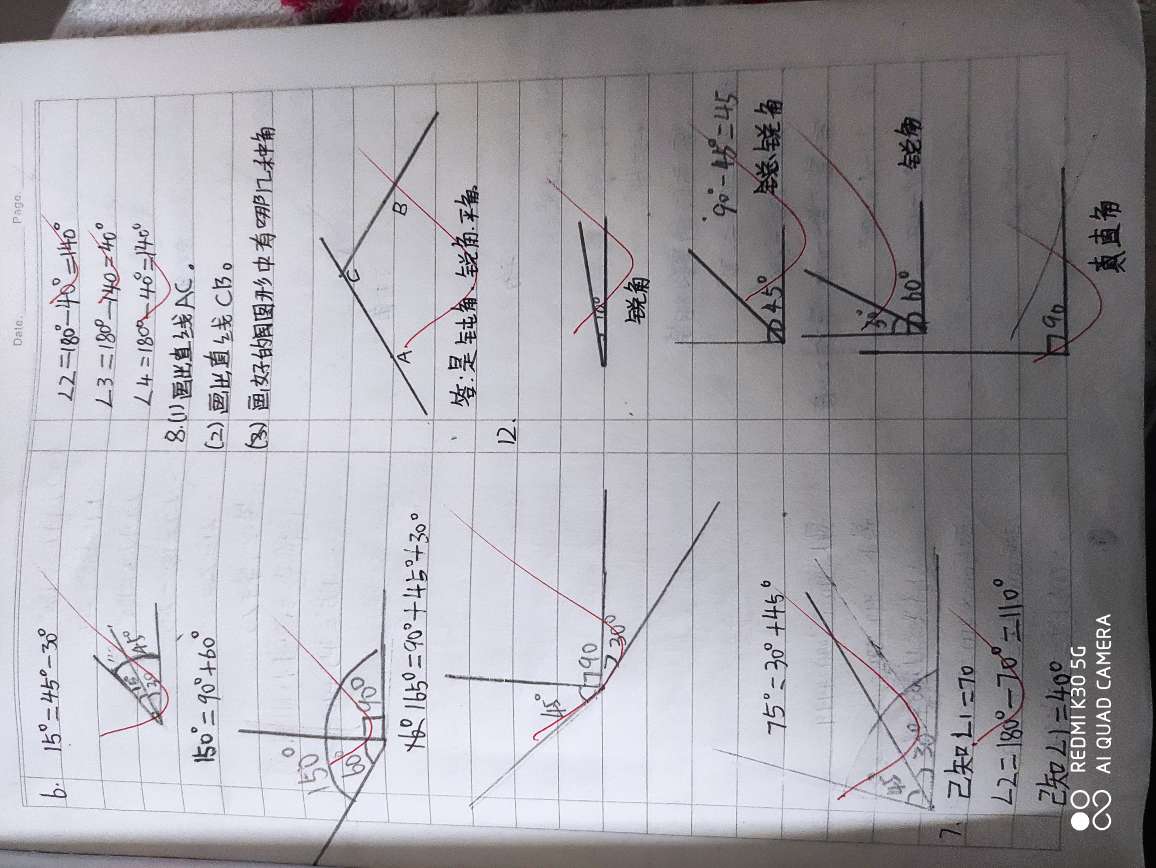 Date. Page
6. 15°=45°-30°
15°
30°
45°
150°=90°+60°
150°
60°
90°
165°=90°+45°+30°
45°
90
30°
75°=30°+45°
45°
30°
7. 已知∠1=70
∠2=180°-70°=110°
已知∠1=40°
∠2=180°-40°=140°
∠3=180°-140=40°
∠4=180°-40°=140°
8.(1)画出直线AC。
(2)画出直线CB。
(3)画好的图形中有哪几种角
A
C
B
答:是钝角、锐角、平角
12.
10°
锐角
90°-45°=45
45°
锐角
30°
60°
锐角
90
直角
REDMI K30 5G
AI QUAD CAMERA